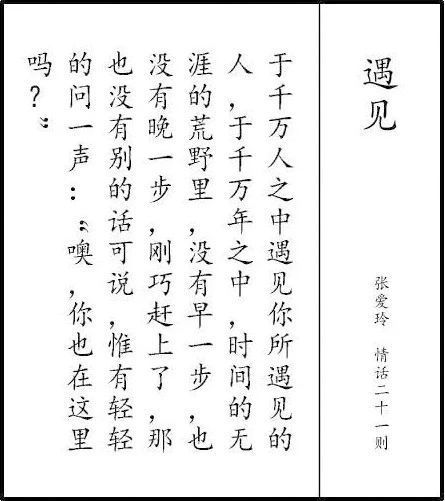 遇见
张爱玲 情话二十一则
于千万人之中遇见你所遇见的
人，于千万年之中，时间的无
涯的荒野里，没有早一步，也
没有晚一步，刚巧赶上了，那
也没有别的话可说，惟有轻轻
的问一声：“噢，你也在这里
吗？”